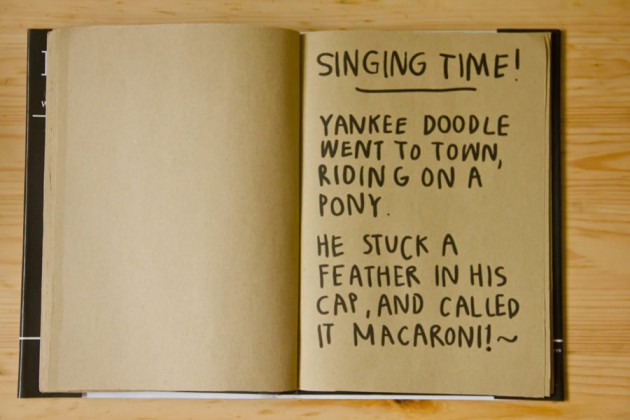 SINGING TIME!
YANKEE DOODLE
WENT TO TOWN,
RIDING ON A
PONY.
HE STUCK A
FEATHER IN HIS
CAP, AND CALLED
IT MACARONI!~